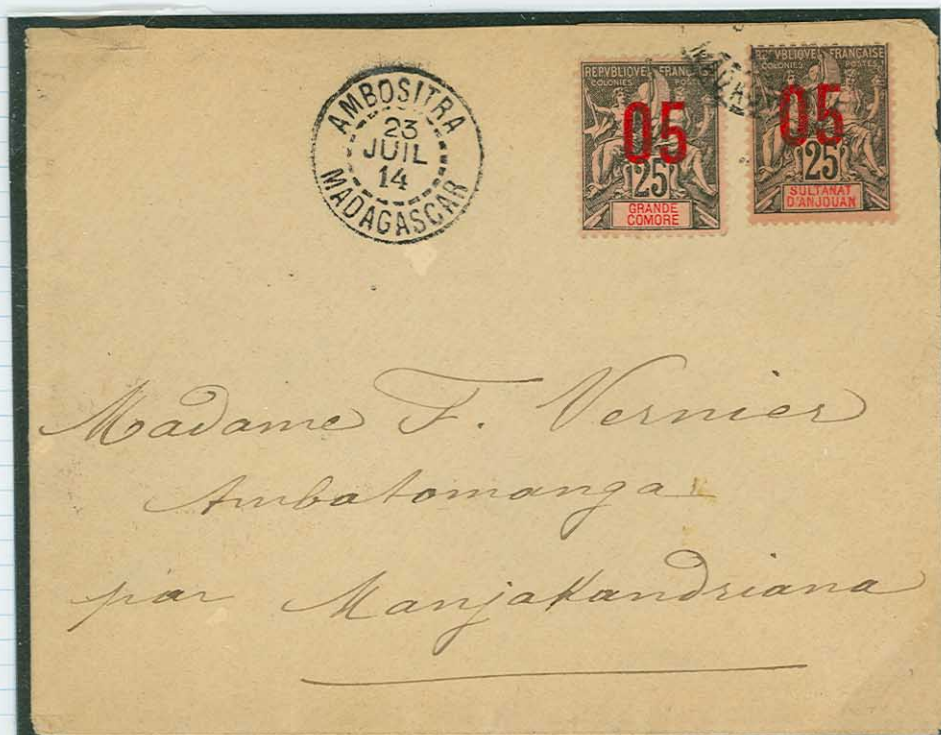 AMBOSITRA
23
JUIL
14
MADAGASCAR
REPVBLIQVE FRANÇAISE
COLONIES
05
25c
GRANDE
COMORE
REPVBLIQVE FRANÇAISE
COLONIES POSTES
05
25c
SULTANAT
D'ANJOUAN
Madame F. Vernier
Ambatomanga
par Manjakandriana